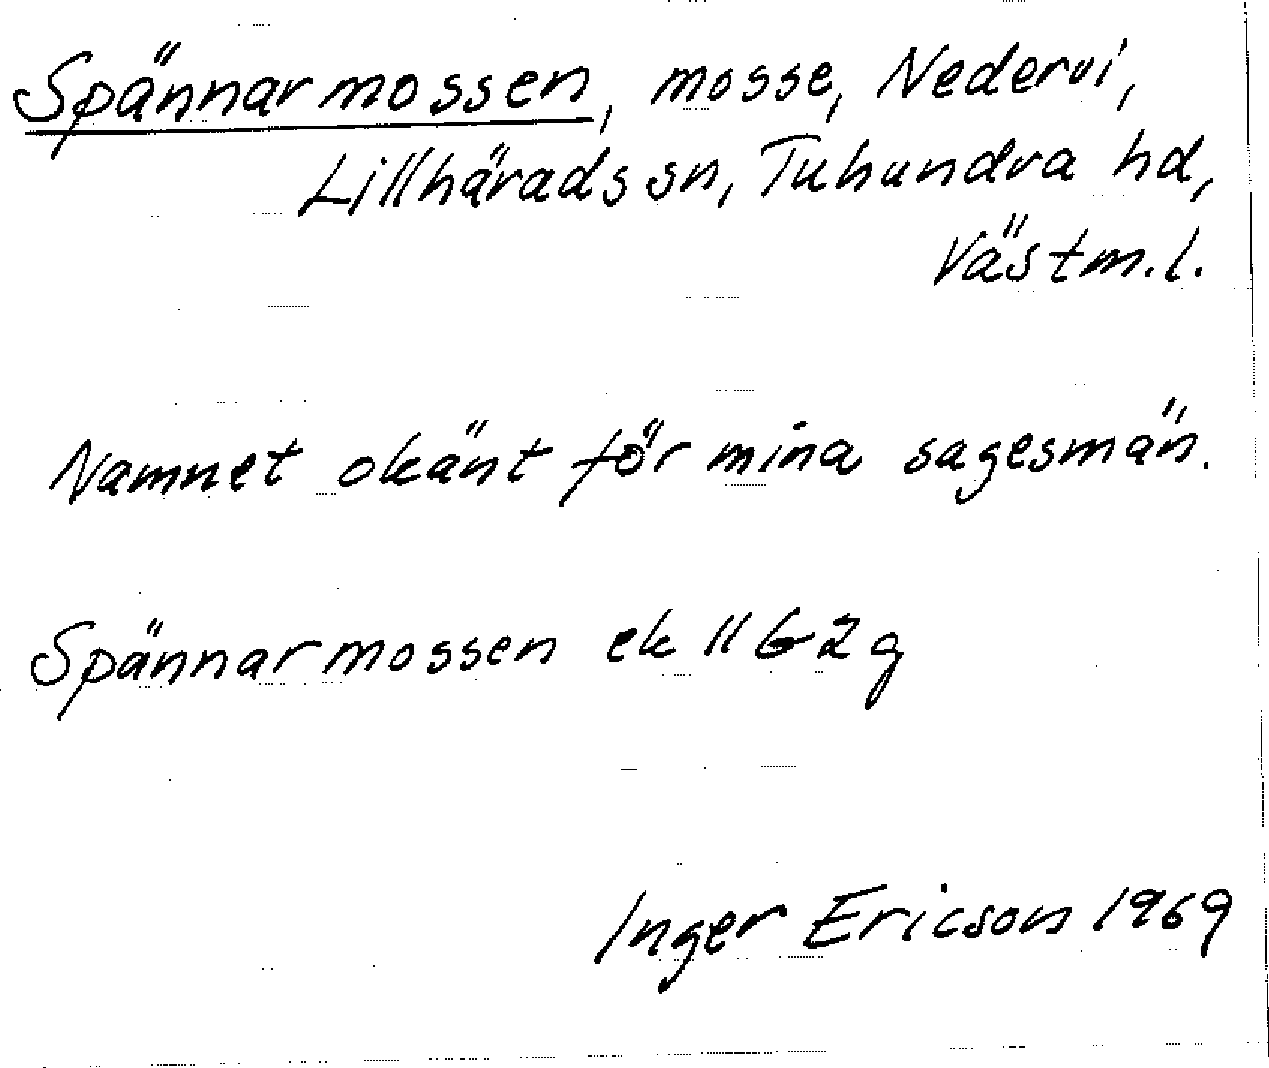 Spännarmossen, mosse, Nedervi,
Lillhärads sn, Tuhundra hd,
Västm.l.
Namnet okänt för mina sagesmän.
Spännarmossen ek 11 G 2 g
Inger Ericson 1969